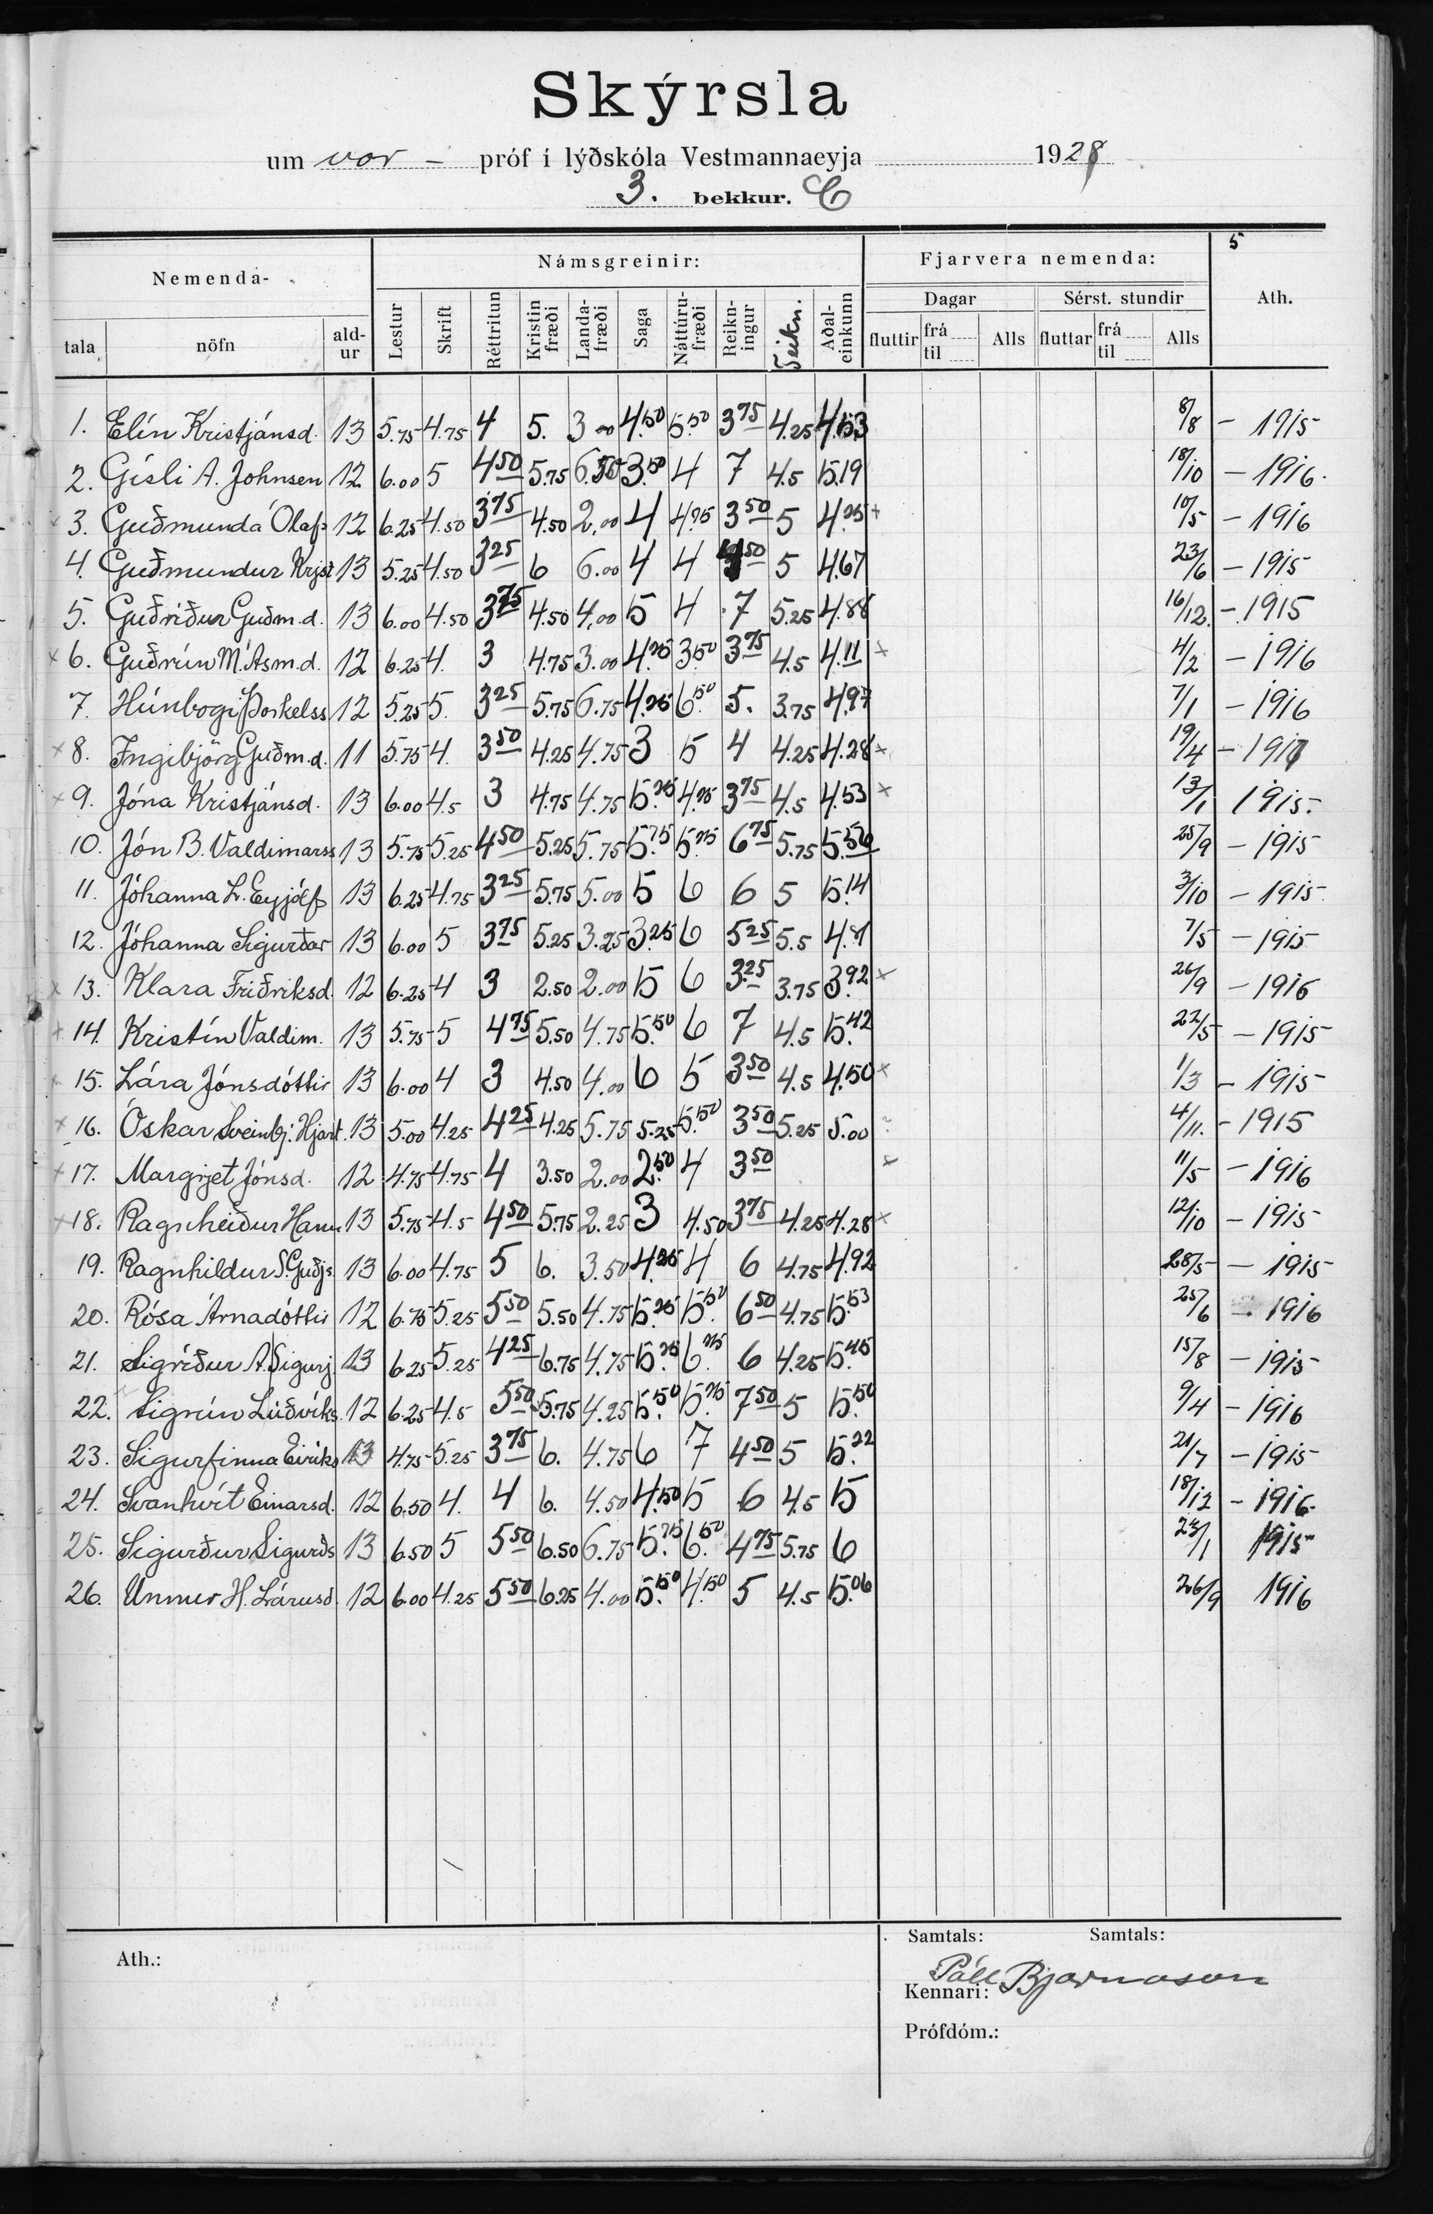 Skýrsla
um vor – próf í lýðskóla Vestmannaeyja 1928
3. bekkur. C
Nemenda- Námsgreinir: Fjarvera nemenda: 5
Dagar Sérst. stundir Ath.
tala nöfn ald-ur Lestur Skrift Réttritun Kristin fræði Landa-fræði Saga Náttúru-fræði Reikn-ingur Teikn. Aðal-einkunn fluttir frá til Alls fluttar frá til Alls
1. Elín Kristjánsd. 13 5.75 4.75 4 5. 3.00 4.50 5.50 3 75 4.25 4.53 8/8 – 1915
2. Gísli A. Johnsen 12 6.00 5 4 50 5.75 6.50 3.50 4 7 4.5 5.19 18/10 – 1916.
× 3. Guðmunda Ólafs 12 6.25 4.50 3 75 4.50 2.00 4 4.75 3 50 5 4.25 + 10/5 – 1916
4. Guðmundur Krist 13 5.25 4.50 3 25 6 6.00 4 4 50 5 4.67 23/6 – 1915
5. Guðríður Guðm.d. 13 6.00 4.50 3 75 4.50 4.00 5 4 7 5.25 4.88 16/12. – 1915
× 6. Guðrún M. Ásm.d. 12 6.25 4. 3 4.75 3.00 4.25 3.50 3 75 4.5 4.11 × 4/2 – 1916
7. Húnbogi Þorkelss 12 5.25 5. 3 25 5.75 6.75 4.25 6.50 5. 3.75 4.97 7/1 – 1916
× 8. Ingibjörg Guðm.d. 11 5.75 4. 3 50 4.25 4.75 3 5 4 4.25 4.28 × 19/4 – 1917
× 9. Jóna Kristjánsd. 13 6.00 4.5 3 4.75 4.75 5.25 4.75 3 75 4.5 4.53 × 13/1 1915.
10. Jón B. Valdimarss 13 5.75 5.25 4 50 5.25 5.75 5.75 5.75 6 75 5.75 5.56 25/9 – 1915
11. Jóhanna L. Eyjólfs 13 6.25 4.75 3 25 5.75 5.00 5 6 6 5 5.14 3/10 – 1915.
12. Jóhanna Sigurðar 13 6.00 5 3 75 5.25 3.25 3.25 6 5 25 5.5 4.81 7/5 – 1915
× 13. Klara Friðriksd. 12 6.25 4 3 2.50 2.00 5 6 3.25 3.75 3.92 × 26/9 – 1916
× 14. Kristín Valdim. 13 5.75 5 4 75 5.50 4.75 5.50 6 7 4.5 5.42 22/5 – 1915
× 15. Lára Jónsdóttir 13 6.00 4 3 4.50 4.00 6 5 3 50 4.5 4.50 × 1/3 – 1915
× 16. Óskar Sveinbj. Hjart. 13 5.00 4.25 4 25 4.25 5.75 5.25 5.50 3 50 5.25 5.00 ? 4/11. – 1915
× 17. Margrjet Jónsd. 12 4.75 4.75 4 3.50 2.00 2.50 4 3 50 × 11/5 – 1916
× 18. Ragnheiður Hann 13 5.75 4.5 4 50 5.75 2.25 3 4.50 3 75 4.25 4.28 × 12/10 – 1915
19. Ragnhildur S. Guðjs. 13 6.00 4.75 5 6. 3.50 4.25 4 6 4.75 4.92 28/5 – 1915
20. Rósa Árnadóttir 12 6.75 5.25 5 50 5.50 4.75 5.25 5.50 6 50 4.75 5.53 25/6 – 1916
21. Sigríður A. Sigurj. 13 6.25 5.25 4 25 6.75 4.75 5.75 6.75 6 4.25 5.45 15/8 – 1915
22. Sigrún Lúðvíks. 12 6.25 4.5 5 50 5.75 4.25 5.50 5.75 7 50 5 5.50 9/4 – 1916
23. Sigurfinna Eiríks 13 4.75 5.25 3 75 6. 4.75 6 7 4 50 5 5.22 21/7 – 1915
24. Svanhvít Einarsd. 12 6.50 4. 4 6. 4.50 4.50 5 6 4.5 5 18/12 – 1916
25. Sigurður Sigurðs 13 6.50 5 5 50 6.50 6.75 5.75 6.50 4 75 5.75 6 23/1 1915
26. Unnur H. Lárusd. 12 6.00 4.25 5 50 6.25 4.00 5.50 4.50 5 4.5 5.06 26/9 1916
Ath.: Samtals: Samtals:
Kennari: Páll Bjarnason
Prófdóm.: